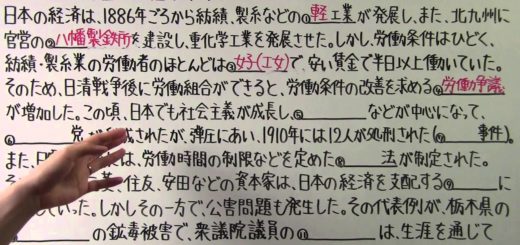 日本の経済は、1886年ごろから紡績、製糸などの①軽工業が発展し、また、北九州に
官営の②八幡製鉄所を建設し、重化学工業を発展させた。しかし、労働条件はひどく、
紡績・製糸業の労働者のほとんどは③女子(工女)で、安い賃金で半日以上働いていた。
そのため、日清戦争後に労働組合ができると、労働条件の改善を求める④労働争議
が増加した。この頃、日本でも社会主義が成長し、⑤などが中心になって、
⑥党が 成されたが、弾圧にあい、1910年には12人が処刑された(⑦事件)。
また、日 は、労働時間の制限などを定めた⑧法が制定された。
菱、住友、安田などの資本家は、日本の経済を支配する⑨に
していった。しかしその一方で、公害問題も発生した。その代表例が、栃木県の
の鉱毒被害で、衆議院議員の⑪は、生涯を通じて